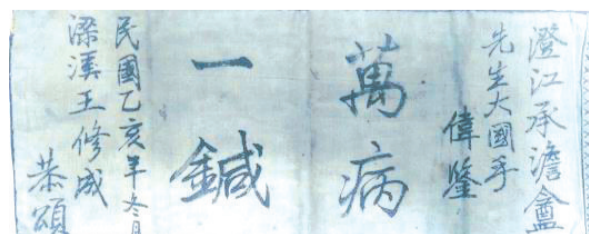 澄江承澹盦
先生大國手
偉鑒
萬病
一鍼
民國乙亥年冬月
梁溪王修成
恭頌